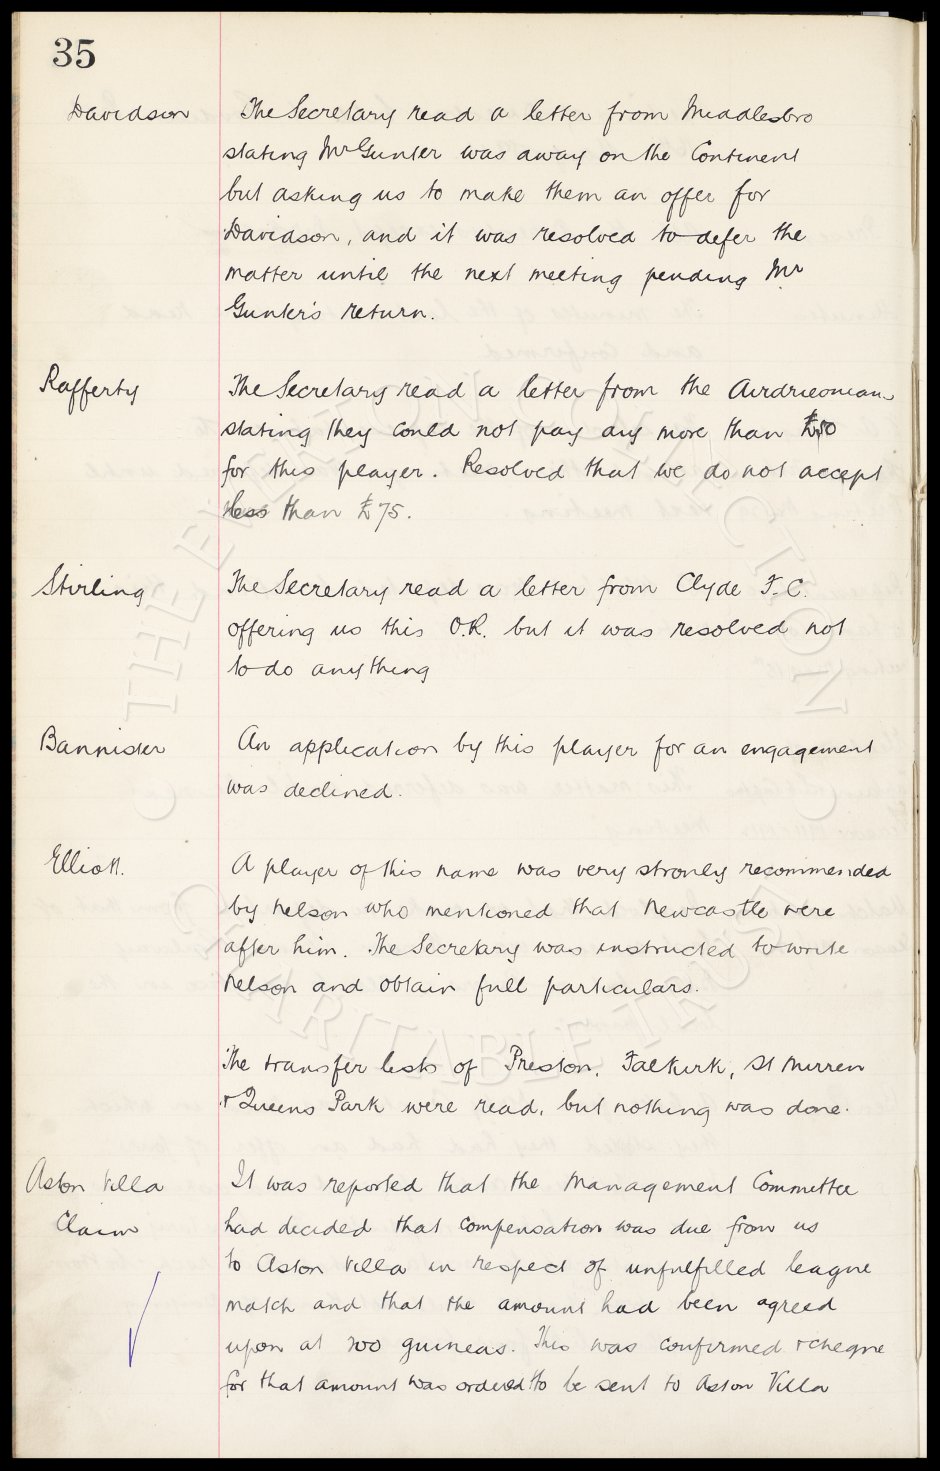 35
Davidson The Secretary read a letter from Middlesbro
stating Mr Gunter was away on the Continent
but asking us to make them an offer for
Davidson, and it was resolved to defer the
matter until the next meeting pending Mr
Gunter's return.
Rafferty The Secretary read a letter from the Airdrieonians
stating they could not pay any more than £50
for this player. Resolved that we do not accept
less than £75.
Stirling The Secretary read a letter from Clyde F.C.
offering us this O.R. but it was resolved not
to do anything
Bannister An application by this player for an engagement
was declined.
Elliott. A player of this name was very stronly recommended
by Nelson who mentioned that Newcastle were
after him. The Secretary was instructed to write
Nelson and obtain full particulars.
The transfer lists of Preston, Falkirk, St Mirren
+ Queens Park were read, but nothing was done.
Aston Villa It was reported that the Management Committee
Claim had decided that compensation was due from us
to Aston Villa in respect of unfulfilled league
match and that the amount had been agreed
upon at 200 guineas. This was confirmed + cheque
for that amount was ordered to be sent to Aston Villa